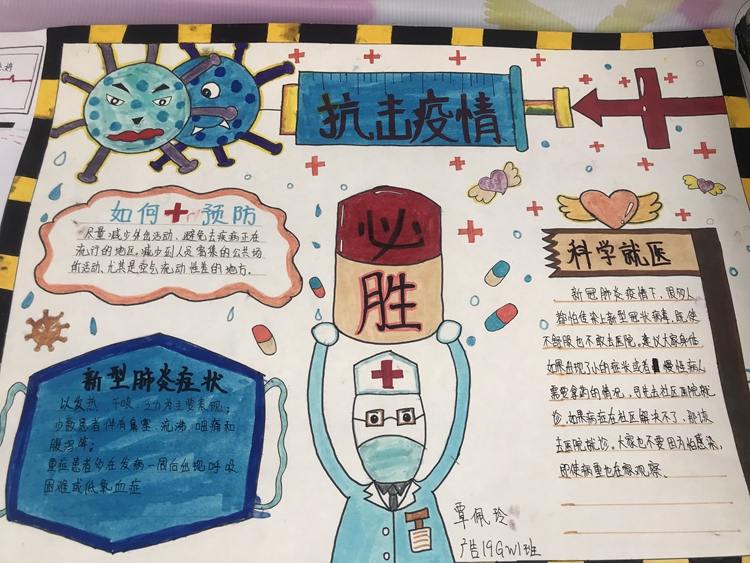 抗击疫情
如何 预防
尽量减少外出活动、避免去疾病正在
流行的地区。减少到人员密集的公共场
所活动,尤其是空气流动性差的地方。
必
胜
科学就医
新冠肺炎疫情下,很多人
都怕传染上新型冠状病毒,既使
不舒服也不敢去医院。建议大家身体
如果出现了小的症状或者慢性病人
需要拿药的情况,可先去社区医院就
诊,如果病症在社区解决不了,那该
去医院就诊。大家也不要因为怕感染,
即使病重也在家观察。
新型肺炎症状
以发热、干咳、乏力为主要表现;
少数患者伴有鼻塞、流涕、咽痛和
腹泻等;
重症患者多在发病一周后出现呼吸
困难或低氧血症
覃佩玲
广告19GW1班